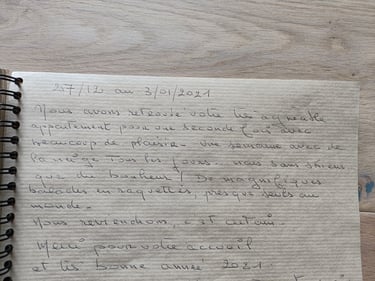 27/12 au 3/01/2021
Nous avons retrouvé votre très agréable
appartement pour une seconde fois avec
beaucoup de plaisir. Une semaine avec de
la neige tous les jours. nous sans skieurs
que du bonheur ! De magnifiques
balades en raquettes, presque seuls au
monde.
Nous reviendrons, c'est certain.
Merci pour votre accueil
et très bonne année 2021.